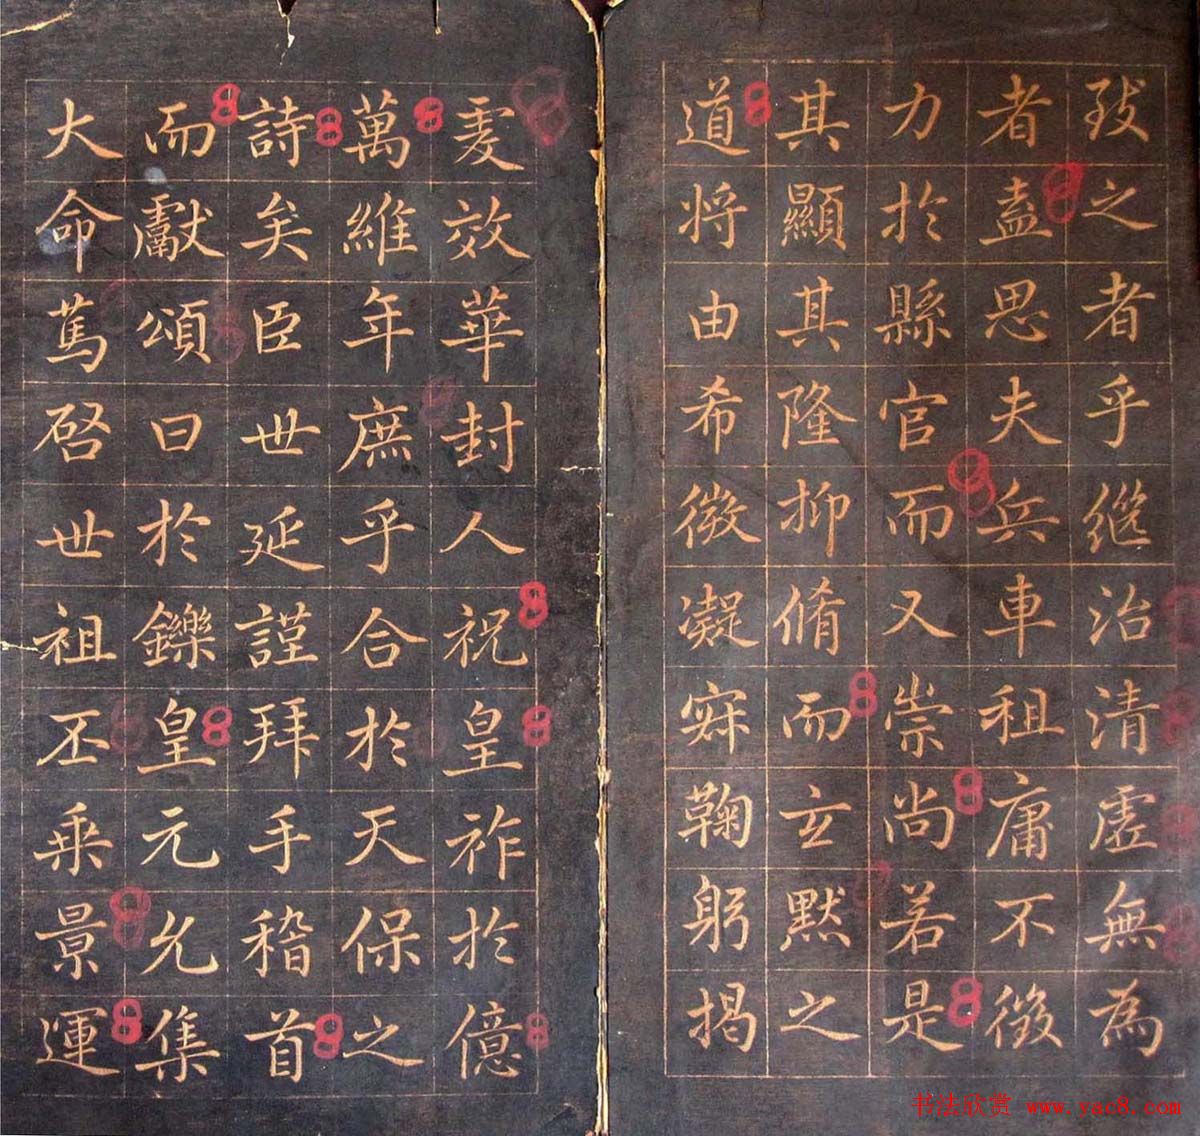 致之者乎继治清虚無為
者盖思夫兵車租庸不徵
力於縣官而又崇尚若是
其顯其隆抑脩而玄默之
道将由希微凝寂鞠躬揭
虔效華封人祝皇祚於億
萬維年庶乎合於天保之
詩矣臣世延謹拜手稽首
而獻頌曰於鑠皇元允集
大命篤啓世祖丕乘景運
书法欣赏 www.yac8.com